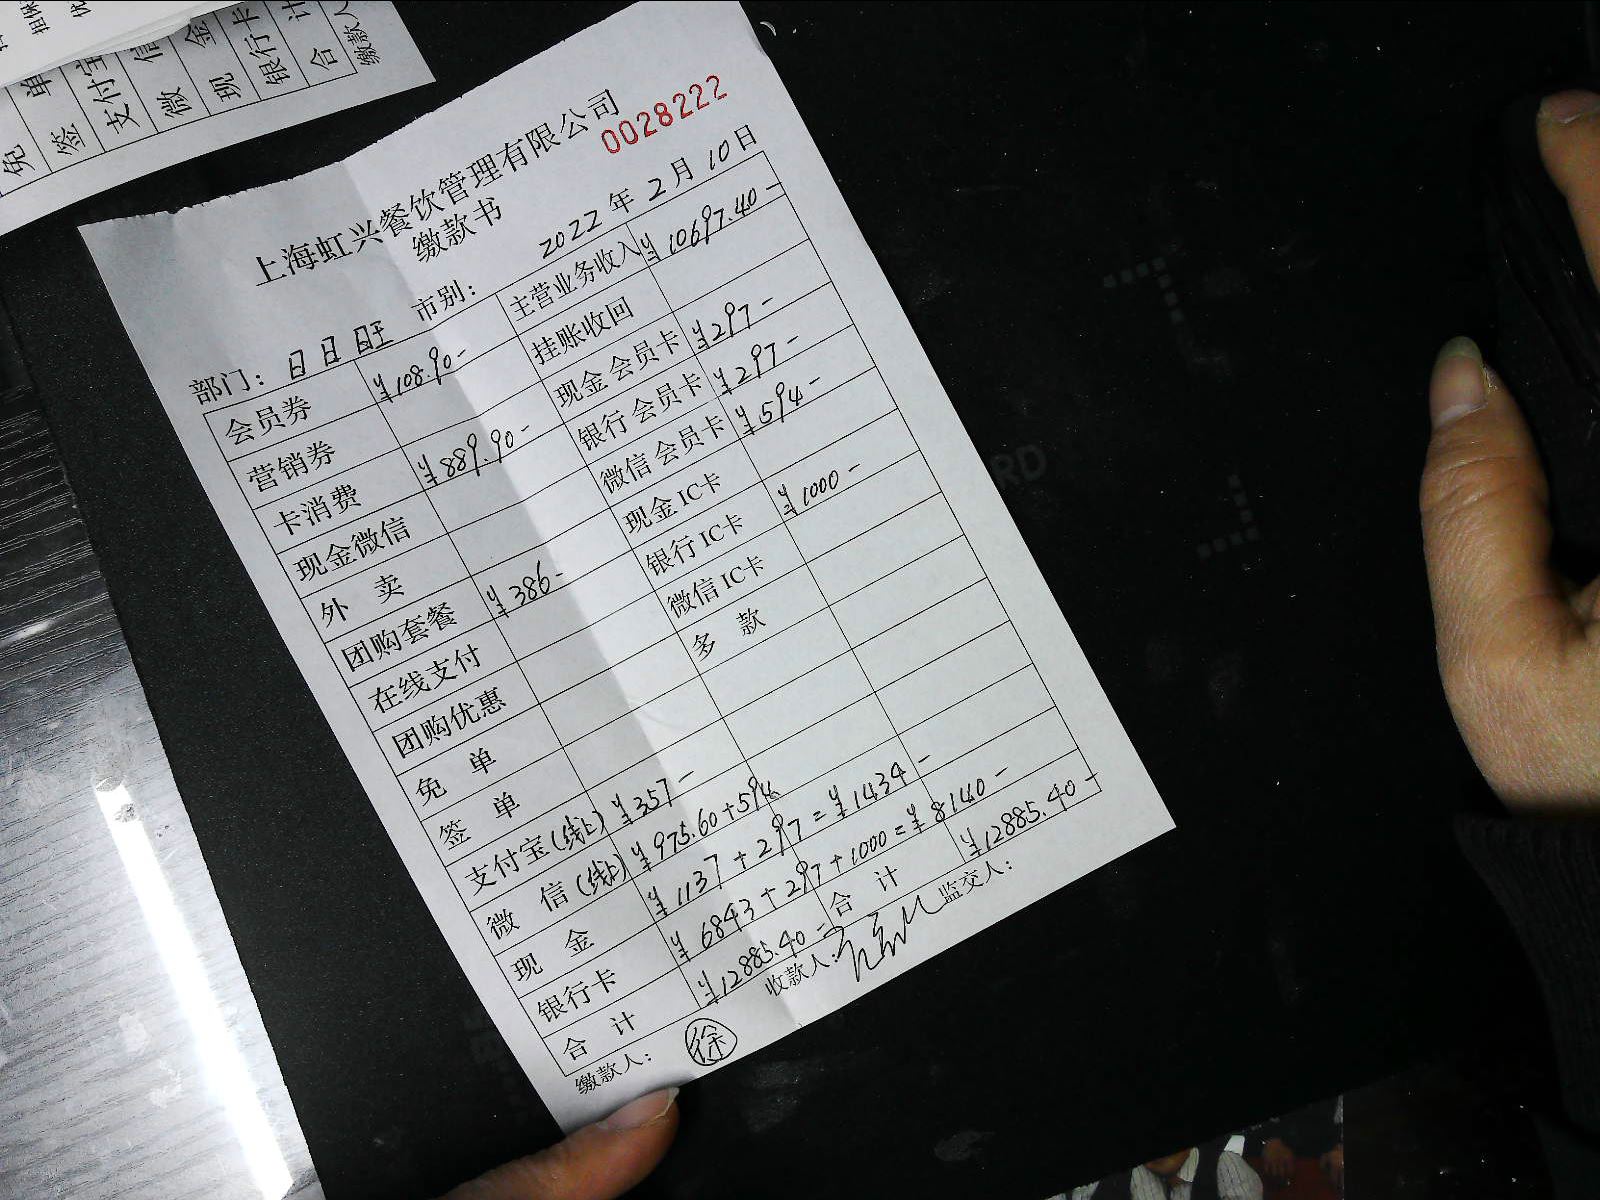 单
签
支付宝
微
信
现
金
银行卡
合
计
缴款人
免
上海虹兴餐饮管理有限公司
0028222
缴款书
2022年2月10日
部门: 日日旺 市别:
会员券 ¥108.90- 主营业务收入 ¥10697.40-
营销券 挂账收回
卡消费 ¥889.90- 现金会员卡 ¥297-
现金微信 银行会员卡 ¥297-
外卖 微信会员卡 ¥594-
团购套餐 ¥386- 现金IC卡
在线支付 银行IC卡 ¥1000-
团购优惠 微信IC卡
免单 多款
签单
支付宝(线上) ¥357-
微信(线上) ¥975.60+594
现金 ¥1137+297=¥1434-
银行卡 ¥6843+297+1000=¥8140-
合计 ¥12885.40- 合计 ¥12885.40-
缴款人: 徐 收款人: 监交人: